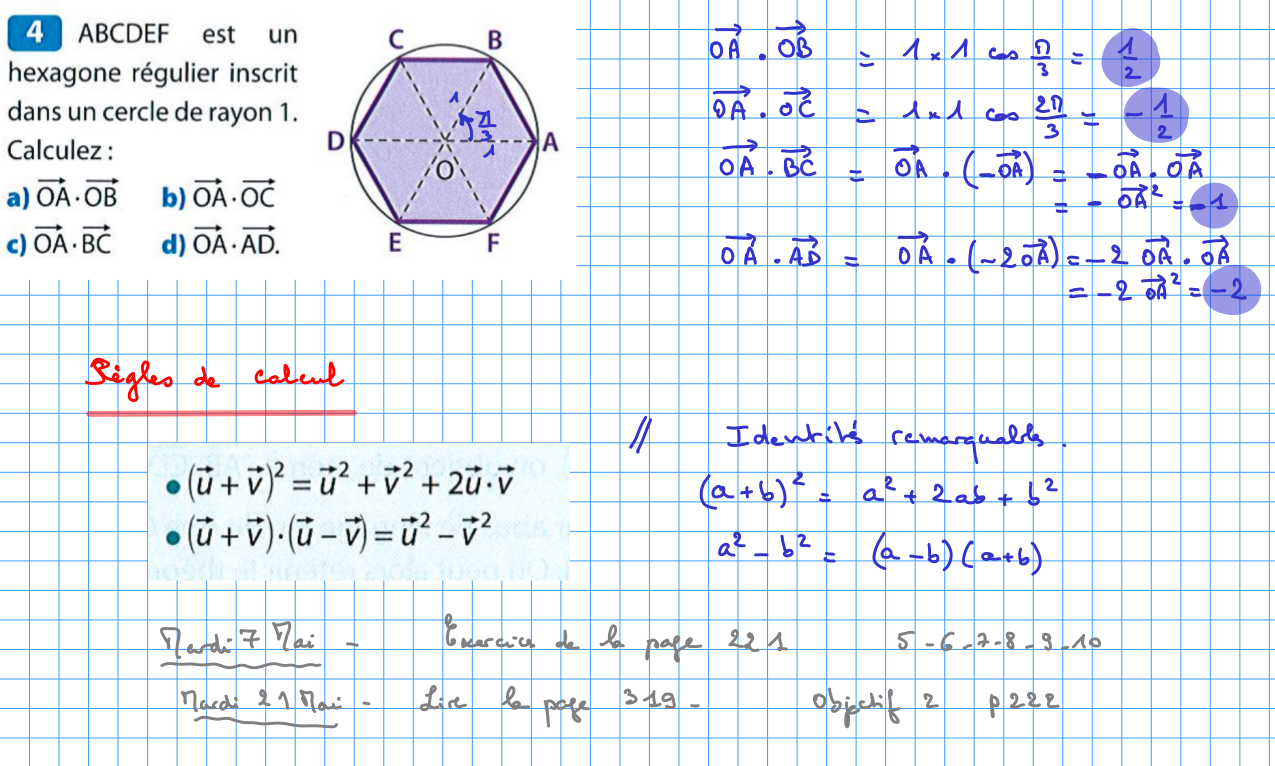 4 ABCDEF est un
hexagone régulier inscrit
dans un cercle de rayon 1.
Calculez :
a) $\vec{OA} \cdot \vec{OB}$ b) $\vec{OA} \cdot \vec{OC}$
c) $\vec{OA} \cdot \vec{BC}$ d) $\vec{OA} \cdot \vec{AD}$.
C B
D O A
E F
1 π/3
1
$\vec{OA} \cdot \vec{OB} = 1 \times 1 \cos \frac{\pi}{3} = \frac{1}{2}$
$\vec{OA} \cdot \vec{OC} = 1 \times 1 \cos \frac{2\pi}{3} = -\frac{1}{2}$
$\vec{OA} \cdot \vec{BC} = \vec{OA} \cdot (-\vec{OA}) = -\vec{OA} \cdot \vec{OA}$
$= -\vec{OA}^2 = -1$
$\vec{OA} \cdot \vec{AD} = \vec{OA} \cdot (-2\vec{OA}) = -2\vec{OA} \cdot \vec{OA}$
$= -2\vec{OA}^2 = -2$
Règles de calcul
• $(\vec{u} + \vec{v})^2 = \vec{u}^2 + \vec{v}^2 + 2\vec{u} \cdot \vec{v}$
• $(\vec{u} + \vec{v}) \cdot (\vec{u} - \vec{v}) = \vec{u}^2 - \vec{v}^2$
// Identités remarquables.
$(a+b)^2 = a^2 + 2ab + b^2$
$a^2 - b^2 = (a-b)(a+b)$
Mardi 7 Mai - Exercices de la page 221 5-6-7-8-9-10
Mardi 21 Mai - Lire la page 319 - Objectif 2 p222